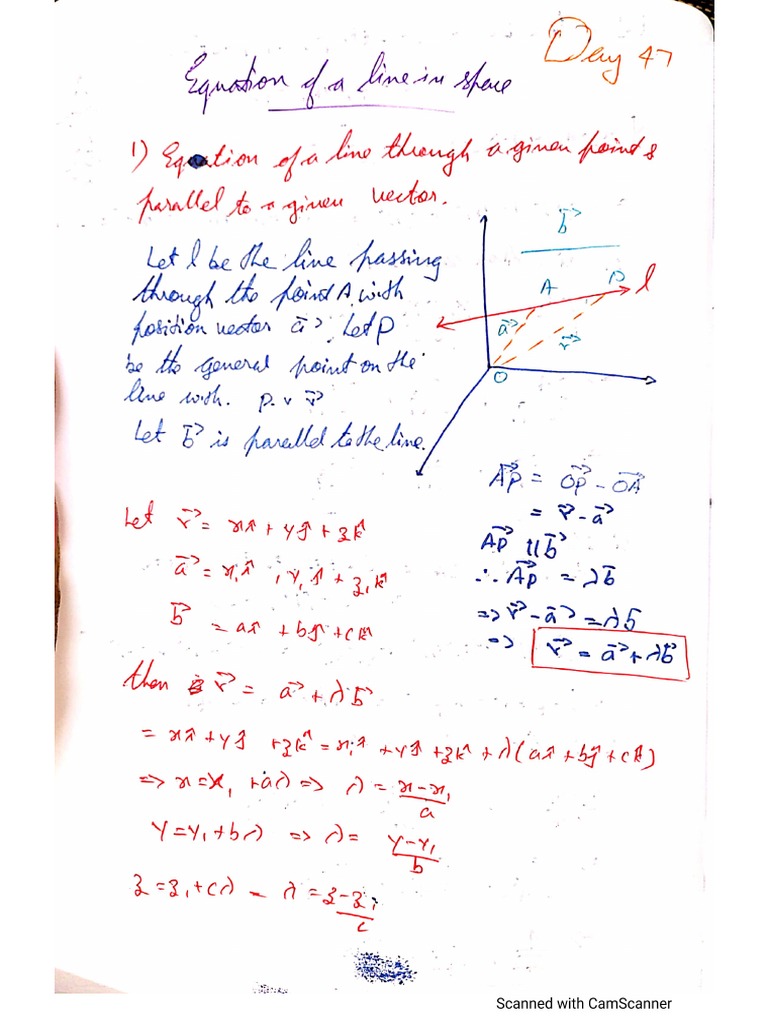 Day 47
Equation of a line in space
1) Equation of a line through a given point &
parallel to a given vector.
Let l be the line passing
through the point A with
position vector a⃗. Let P
be the general point on the
line with. p. v r⃗
Let b⃗ is parallel to the line.
b⃗
A P l
a⃗ r⃗
O
AP⃗ = OP⃗ - OA⃗
= r⃗ - a⃗
AP⃗ || b⃗
∴ AP⃗ = λb⃗
=> r⃗ - a⃗ = λb⃗
=> r⃗ = a⃗ + λb⃗
Let r⃗ = xî + yĵ + zk̂
a⃗ = x₁î , y₁ĵ + z₁k̂
b⃗ = aî + bĵ + ck̂
then r⃗ = a⃗ + λb⃗
= xî + yĵ + zk̂ = x₁î + yĵ + zk̂ + λ(aî + bĵ + ck̂)
=> x = x₁ + aλ => λ = x - x₁ / a
y = y₁ + bλ => λ = y - y₁ / b
z = z₁ + cλ - λ = z - z₁ / c
Scanned with CamScanner